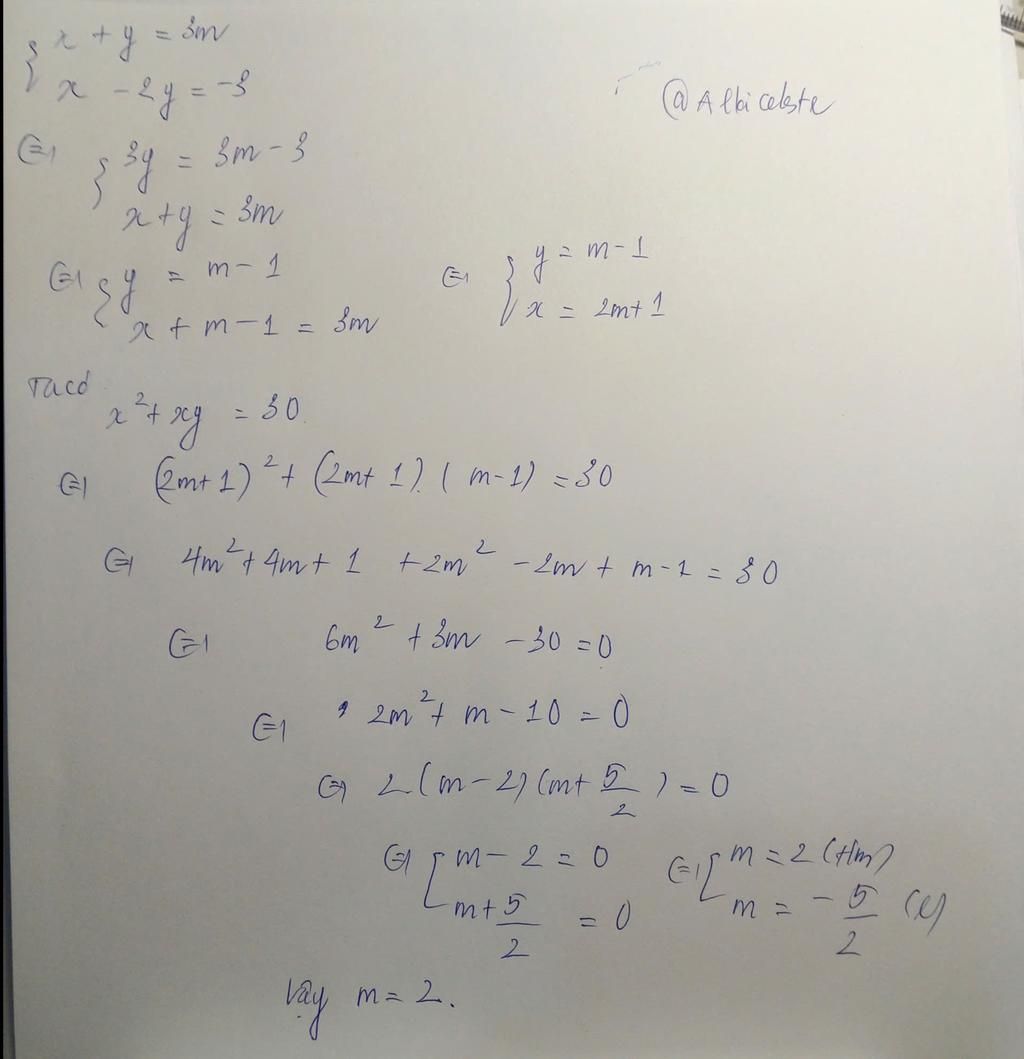 { x + y = 3m
x - 2y = -3
@Albiceleste
⇔ { 3y = 3m - 3
x + y = 3m
⇔ { y = m - 1
x + m - 1 = 3m
⇔ { y = m - 1
x = 2m + 1
Ta có
x² + xy = 30
⇔ (2m + 1)² + (2m + 1).(m - 1) = 30
⇔ 4m² + 4m + 1 + 2m² - 2m + m - 1 = 30
⇔ 6m² + 3m - 30 = 0
⇔ 2m² + m - 10 = 0
⇔ 2(m - 2)(m + 5/2) = 0
⇔ [ m - 2 = 0
m + 5/2 = 0
⇔ [ m = 2 (t/m)
m = -5/2 (l)
Vậy m = 2.